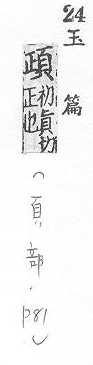 24
玉篇
頙
初責切
正也
(頁部．p81)